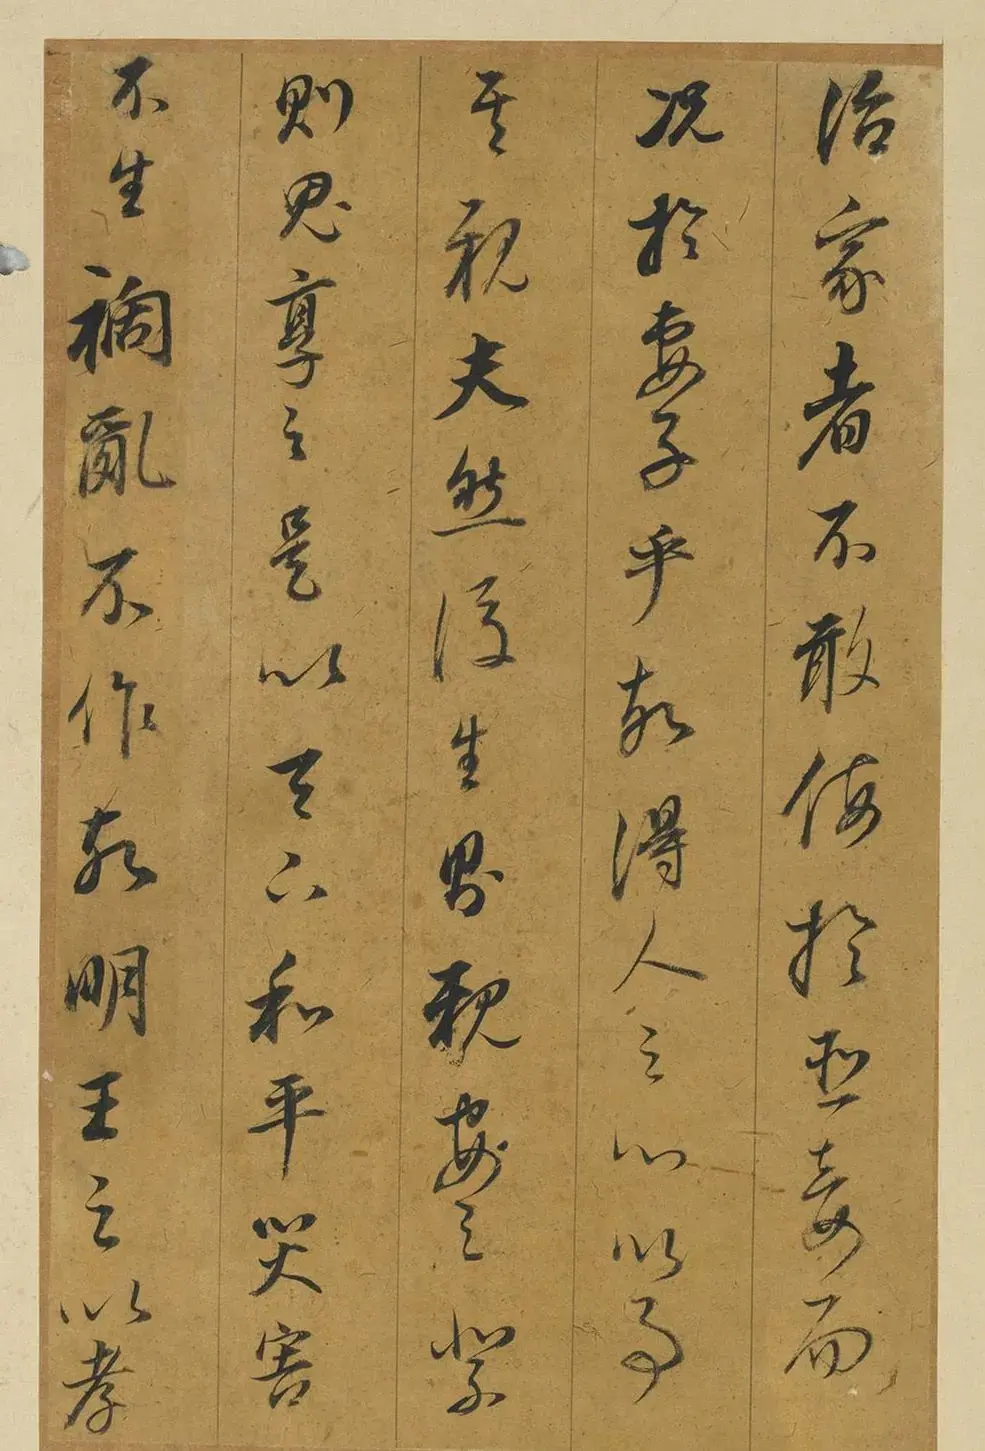 治家者不敢侮於臣妾而
况於妻子乎故得人之心以事
其親夫然後生則親安之祭
則鬼享之是以天下和平災害
不生禍亂不作故明王之以孝